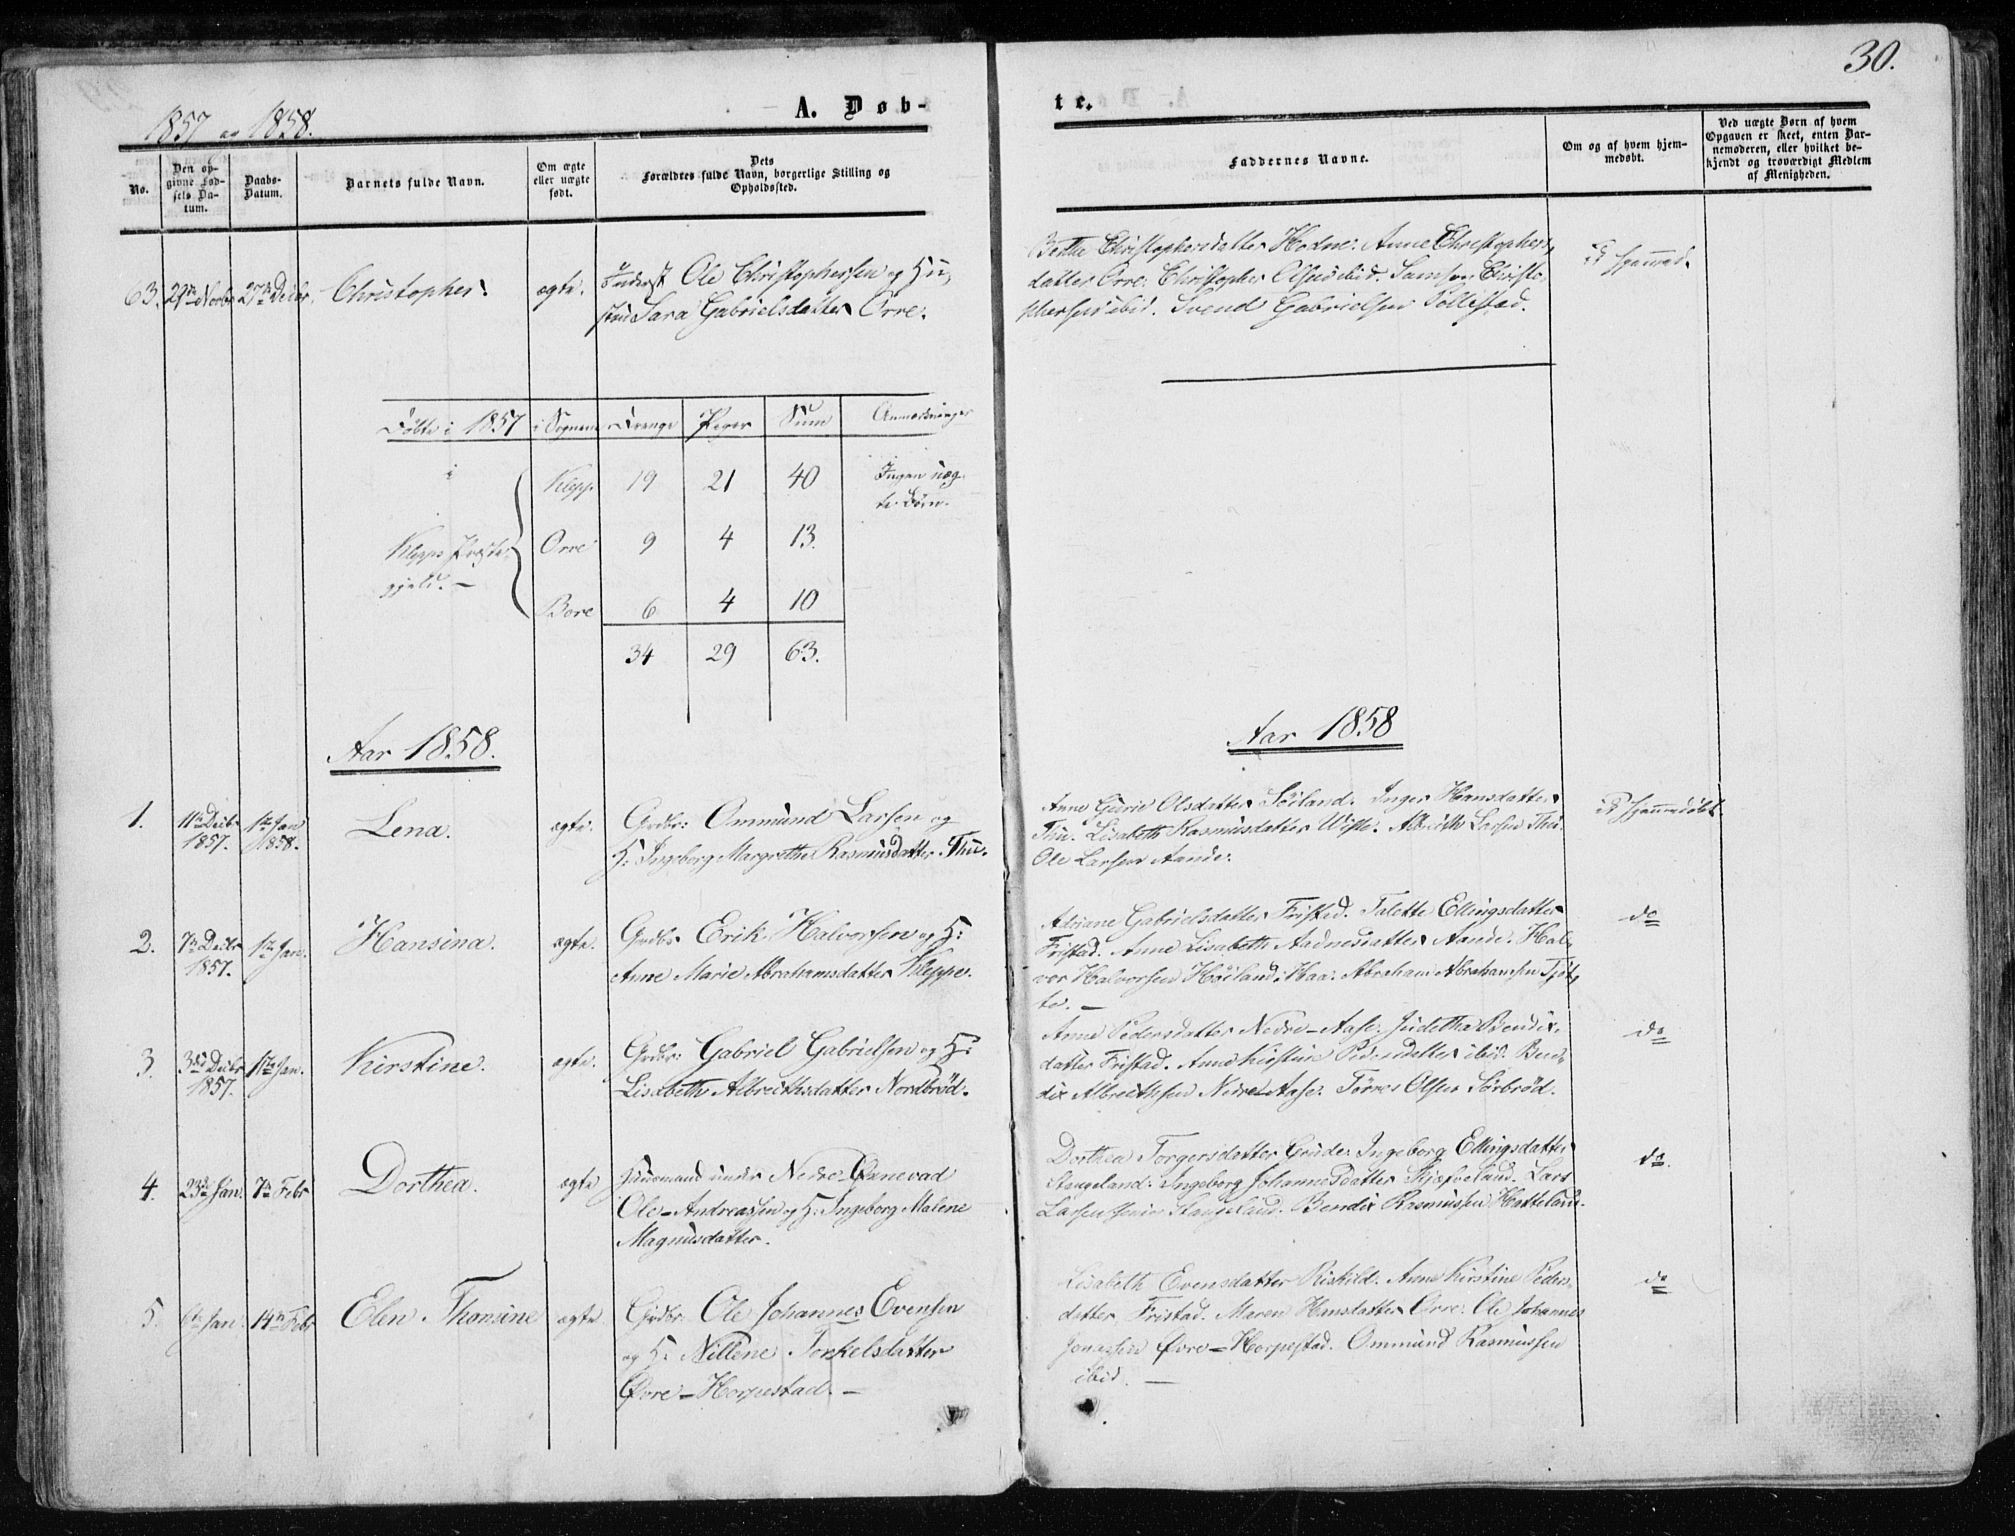 30.
1857 og 1858.
A. Døb-
te.
No.
Den op-
givne Fød-
sels Da-
tum.
Daabs-
Datum.
Barnets fulde Navn.
Om ægte
eller uægte
født.
Dets
Forældres fulde Navn, borgerlige Stilling og
Opholdssted.
Faddernes Navne.
Om og af hvem hjem-
medøbt.
Ved uægte Børn af hvem
Opgaven er skeet, enten Bar-
nemoderen, eller hvilket be-
kjendt og troværdigt Medlem
af Menigheden.
63. 29de Novbr 27de Decbr. Christopher. ægte.
Inderst Ole Christophersen og Hu-
stru Sara Gabrielsdatter Orre.
Berthe Christophersdatter Hodne. Anne Christophers-
datter Orre. Christopher Olsen ibid. Samson Christo-
phersen ibid. Svend Gabrielsen Pollestad.
Ei hjemmed.
Døbte i 1857 i Sognene Drenge Piger Sum Anmærkninger
i
Klepps Præste-
gjeld. —
Klepp. 19 21 40 Ingen uæg-
te Børn.
Orre 9 4 13.
Bore 6 4 10
34 29 63.
Aar 1858.
Aar 1858
1. 11te Decbr
1857. 1ste Jan
1858. Lena. ægte.
Grdbr: Ommund Larsen og
H: Ingeborg Margrethe Rasmusdatter Thu.
Anne Gurie Olsdatter Söiland. Inger Hansdatter
Thu. Lisabeth Rasmusdatter Wiste. Albrecth Larsen Thu.
Ole Larsen Aande.
Ei hjemmedøbt.
2. 7de Decbr
1857. 1ste Jan. Hansina. ægte.
Grdbr Erik Halvorsen og H:
Anne Marie Abrahamsdatter Kleppe.
Adriane Gabrielsdatter Fristed. Talette Ellingsdatter
Fristad. Anne Lisabeth Aadnesdatter Aande. Hal-
vor Halvorsen Höiland i Haa. Abraham Abrahamsen Tjöt-
te. —
do
3. 3die Decbr
1857. 1ste Jan. Kirstine. ægte.
Grdbr: Gabriel Gabrielsen og H:
Lisabeth Albrecthsdatter Nordbröd.
Anne Pedersdatter Nedre-Aase. Judetha Bendix-
datter Fristad. Anne Kirstine Pedersdatter ibid. Ben-
dix Albrecthsen Nedre-Aase. Törres Olsen Sörbröd.
do
4. 23de Jan. 7de Febr Dorthea. ægte
Huusmand under Nedre Øxnevad
Ole Andreassen og H: Ingeborg Malene
Magnusdatter.
Dorthea Torgersdatter Grude. Ingeborg Ellingsdatter
Stangeland. Ingeborg Johannesdatter Skjæveland. Lars
Larsen junior Stangeland. Bendix Rasmussen Hatteland.
do.
5. 6te Jan. 14de Febr Elen Thonsine ægte.
Grdbr. Ole Johannes Evensen
og H: Nillene Torkelsdatter
Øvre-Horpestad. —
Lisabeth Evensdatter Riskild. Anne Kirstine Peders-
datter Fristad. Maren Hansdatter Orre. Ole Johannes
Jonassen Øvre-Horpestad. Ommund Rasmussen
ibid. —
do